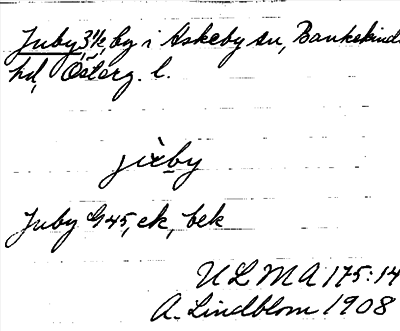 Juby 3½, by i Askeby sn, Bankekinds
hd, Österg. l.
jixby
Juby G45, ek, bek
ULMA 175:14
A. Lindblom 1908